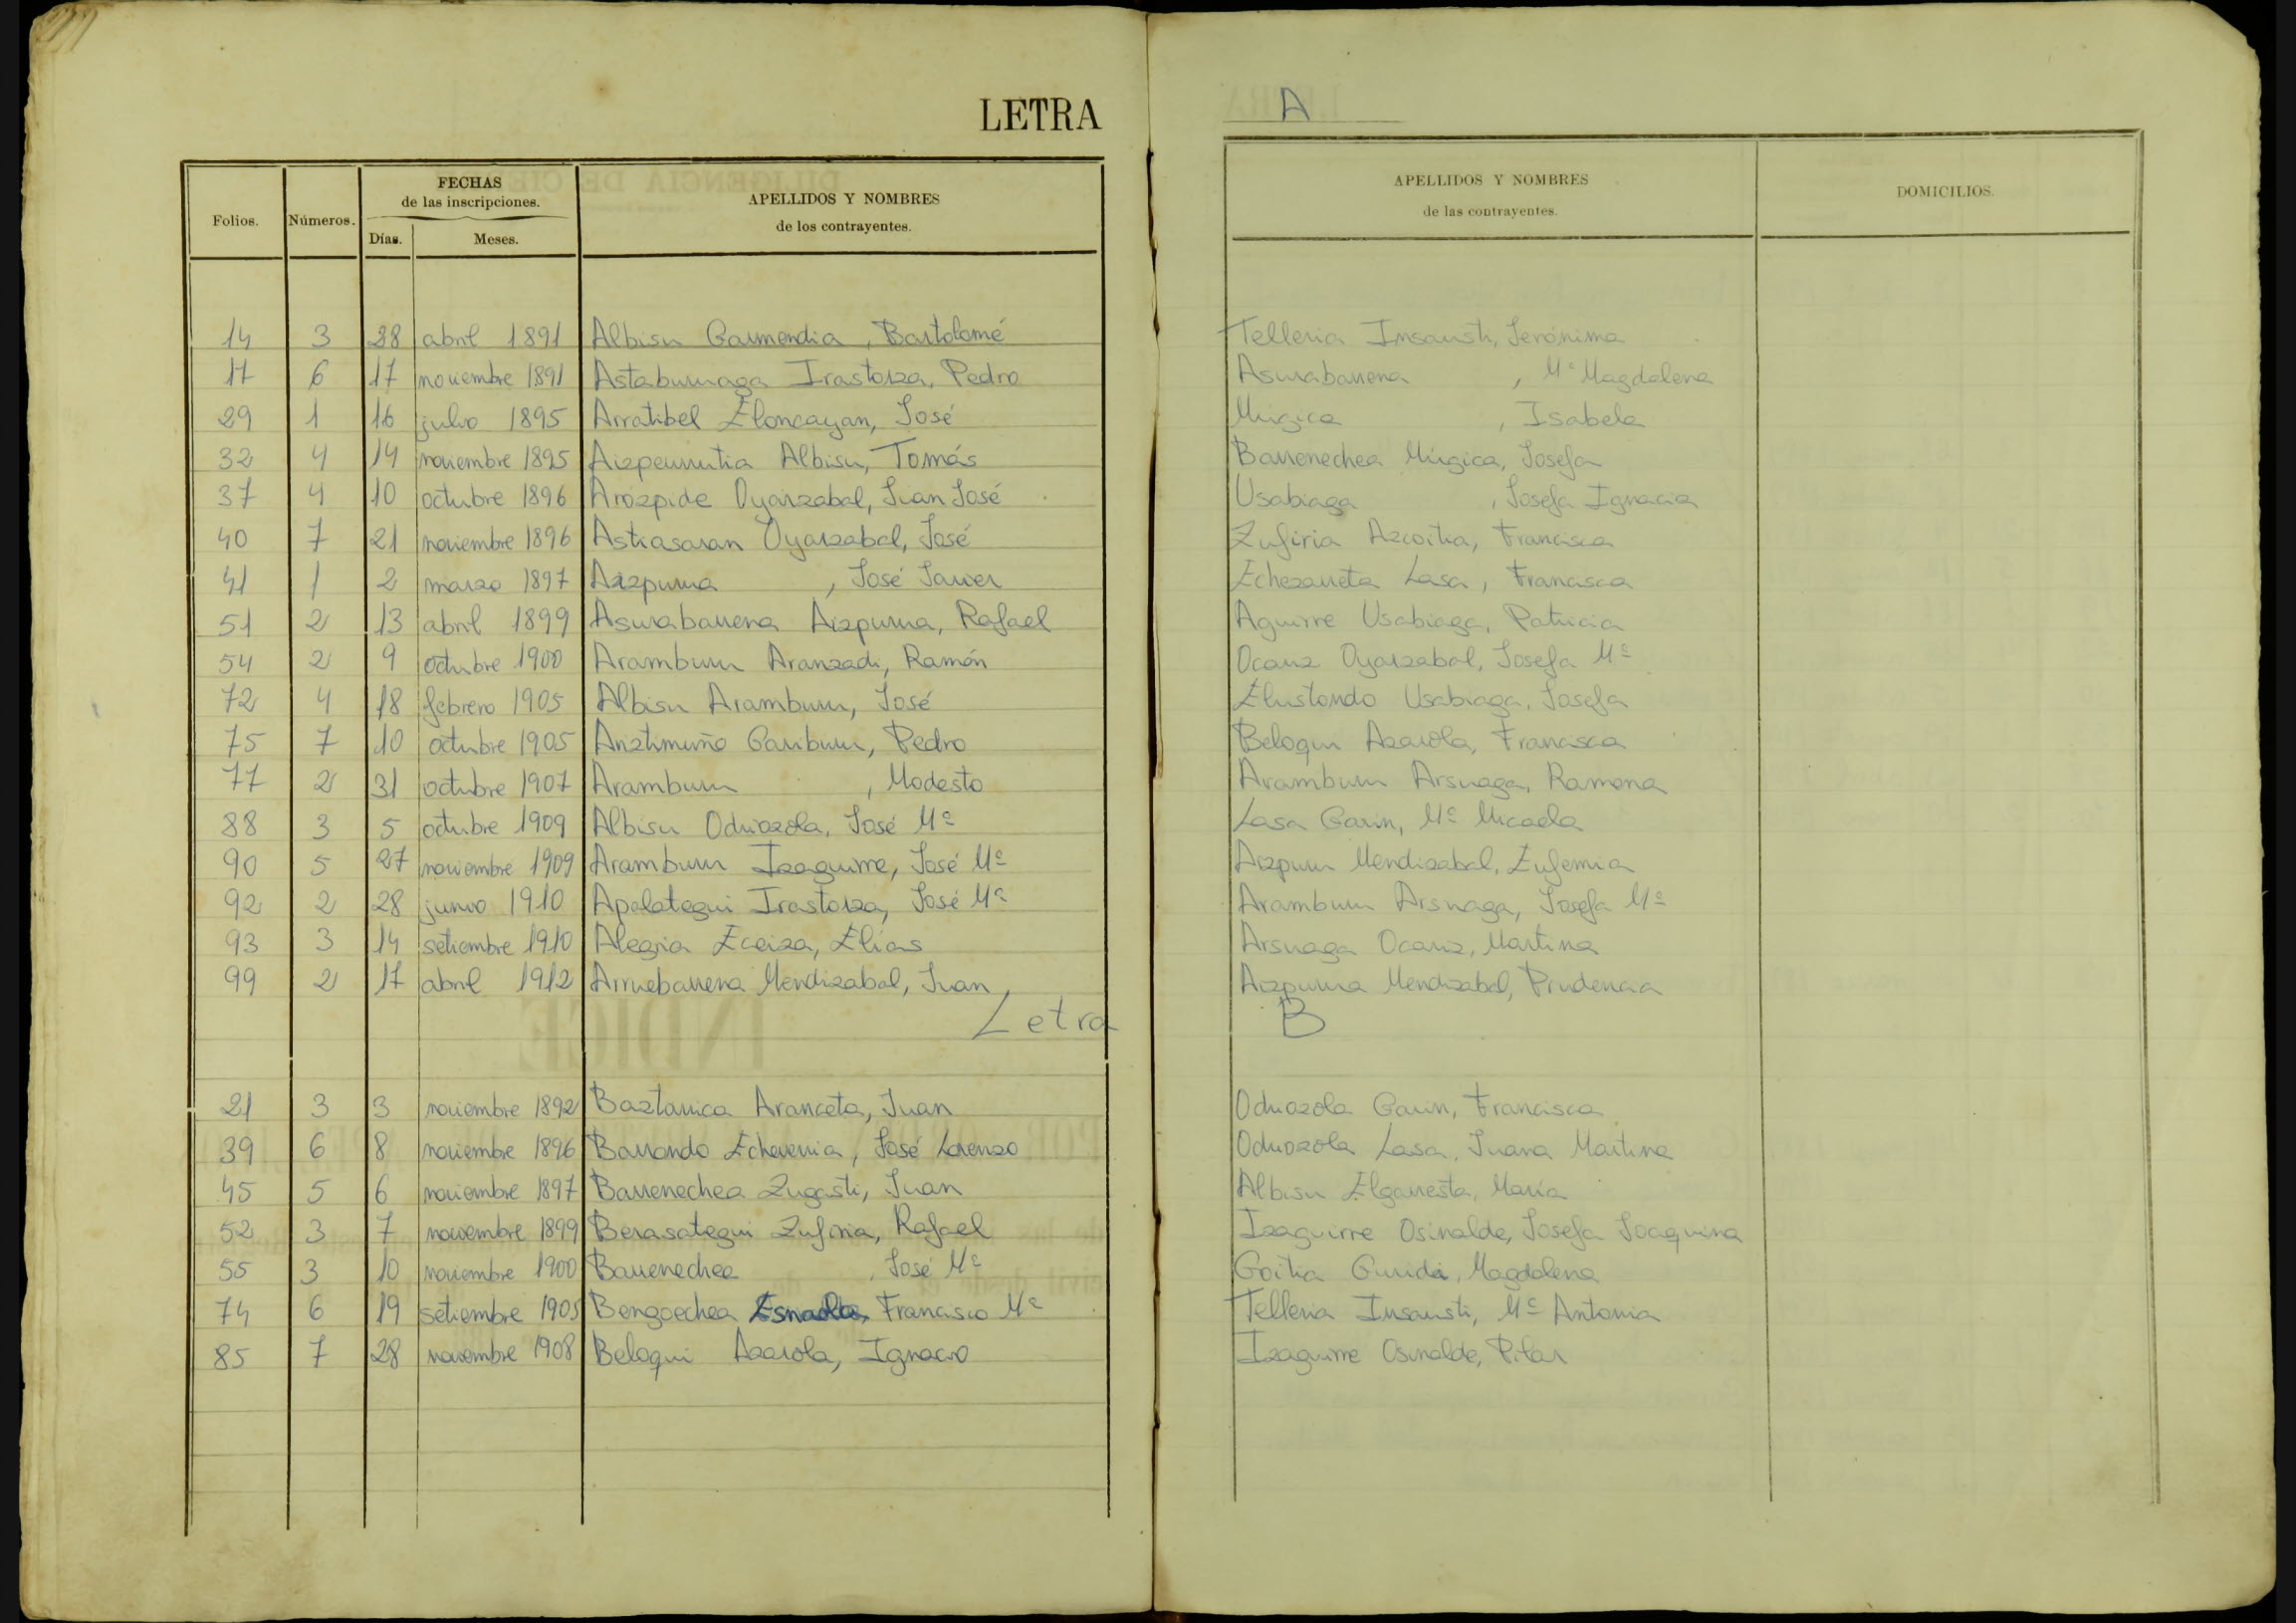 LETRA A
Folios. Números. FECHAS de las inscripciones. Días. Meses. APELLIDOS Y NOMBRES de los contrayentes. APELLIDOS Y NOMBRES de las contrayentes. DOMICILIOS.
14 3 28 abril 1891 Albisu Garmendia, Bartolomé Telleria Insausti, Jerónima
17 6 17 noviembre 1891 Astaburuaga Irastorza, Pedro Asurabarrena , Mª Magdalena
29 1 16 julio 1895 Arratibel Eloncayan, José Múgica , Isabela
32 4 14 noviembre 1895 Aizpeurrutia Albisu, Tomás Barrenechea Múgica, Josefa
37 4 10 octubre 1896 Arozpide Oyarzabal, Juan José Usabiaga , Josefa Ignacia
40 7 21 noviembre 1896 Astiasaran Oyarzabal, José Zufiria Azcoitia, Francisca
41 1 2 marzo 1897 Aizpurua , José Javier Echezarreta Lasa, Francisca
51 2 13 abril 1899 Asurabarrena Aizpurua, Rafael Aguirre Usabiaga, Patricia
54 2 9 octubre 1900 Aramburu Aranzadi, Ramón Ocariz Oyarzabal, Josefa Mª
72 4 18 febrero 1905 Albisu Aramburu, José Elustondo Usabiaga, Josefa
75 7 10 octubre 1905 Ariztimuño Gariburu, Pedro Beloqui Azarola, Francisca
77 2 31 octubre 1907 Aramburu , Modesto Aramburu Arsuaga, Ramona
88 3 5 octubre 1909 Albisu Odriozola, José Mª Lasa Garin, Mª Micaela
90 5 27 noviembre 1909 Aramburu Izaguirre, José Mª Aizpuru Mendizabal, Eufemia
92 2 28 junio 1910 Apalategui Irastorza, José Mª Aramburu Arsuaga, Josefa Mª
93 3 14 setiembre 1910 Alegria Eceiza, Elías Arsuaga Ocariz, Martina
99 2 17 abril 1912 Arruebarrena Mendizabal, Juan Aizpurua Mendizabal, Prudencia
Letra B
21 3 3 noviembre 1892 Baztarrica Aranceta, Juan Odriozola Garin, Francisca
39 6 8 noviembre 1896 Barrondo Echeverria, José Lorenzo Odriozola Lasa, Juana Martina
45 5 6 noviembre 1897 Barrenechea Zugasti, Juan Albisu Elgarresta, María
52 3 7 noviembre 1899 Berasategui Zufiria, Rafael Izaguirre Osinalde, Josefa Joaquina
55 3 10 noviembre 1900 Barrenechea , José Mª Goitia Guridi, Magdalena
74 6 19 setiembre 1905 Bengoechea Esnaola, Francisco Mª Telleria Insausti, Mª Antonia
85 7 28 noviembre 1908 Beloqui Azarola, Ignacio Izaguirre Osinalde, Pilar